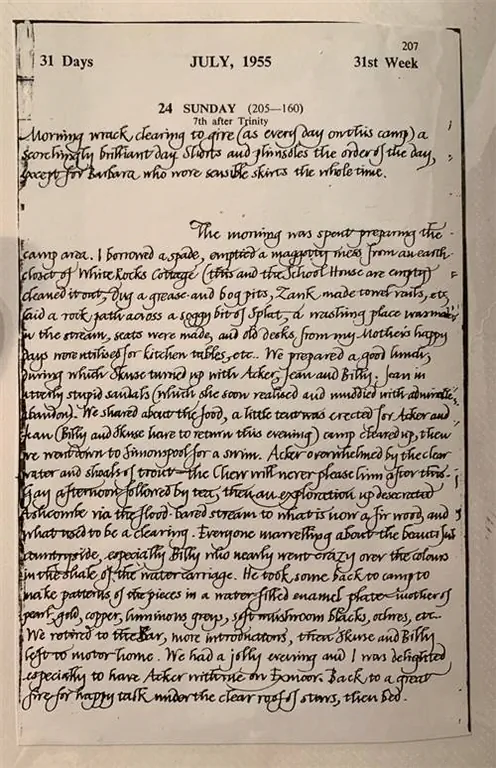 207
31 Days JULY, 1955 31st Week
24 SUNDAY (205—160)
7th after Trinity
Morning wrack clearing to give (as every day on this camp) a
scorchingly brilliant day. Shorts and plimsoles the order of the day,
except for Barbara who wore sensible skirts the whole time.
The morning was spent preparing the
camp area. I borrowed a spade, emptied a maggotty mess from an earth
closet of White Rocks Cottage (this and the School House are empty)
cleaned it out, dug a grease and bog pits, Zank made towel rails, etc,
laid a rock path across a soggy bit of Splat, a washing place was made
in the stream, seats were made, and old desks, from my Mother's happy
days were utilised for kitchen tables, etc.. We prepared a good lunch,
during which Skuse turned up with Acker, Jean and Billy. Jean in
utterly stupid sandals (which she soon realised and muddied with admirable
abandon). We shared about the food, a little tent was erected for Acker and
Jean (Billy and Skuse have to return this evening) camp cleared up, then
we went down to Simonspool for a swim. Acker overwhelmed by the clear
water and shoals of trout — the Chew will never please him after this.
Gay afternoon followed by tea, then an exploration up desecrated
Ashcombe via the flood-bared stream to what is now a fir wood, and
what used to be a clearing. Everyone marvelling about the beauteous
countryside, especially Billy who nearly went crazy over the colours
in the shale of the water carriage. He took some back to camp to
make patterns of the pieces in a water filled enamel plate — mother of
pearl, gold, copper, luminous greys, soft mushroom blacks, ochres, etc..
We retired to the Bar, more introductions, then Skuse and Billy
left to motor home. We had a jolly evening and I was delighted
especially to have Acker with me on Exmoor. Back to a great
fire for happy talk under the clear roof of stars, then bed.